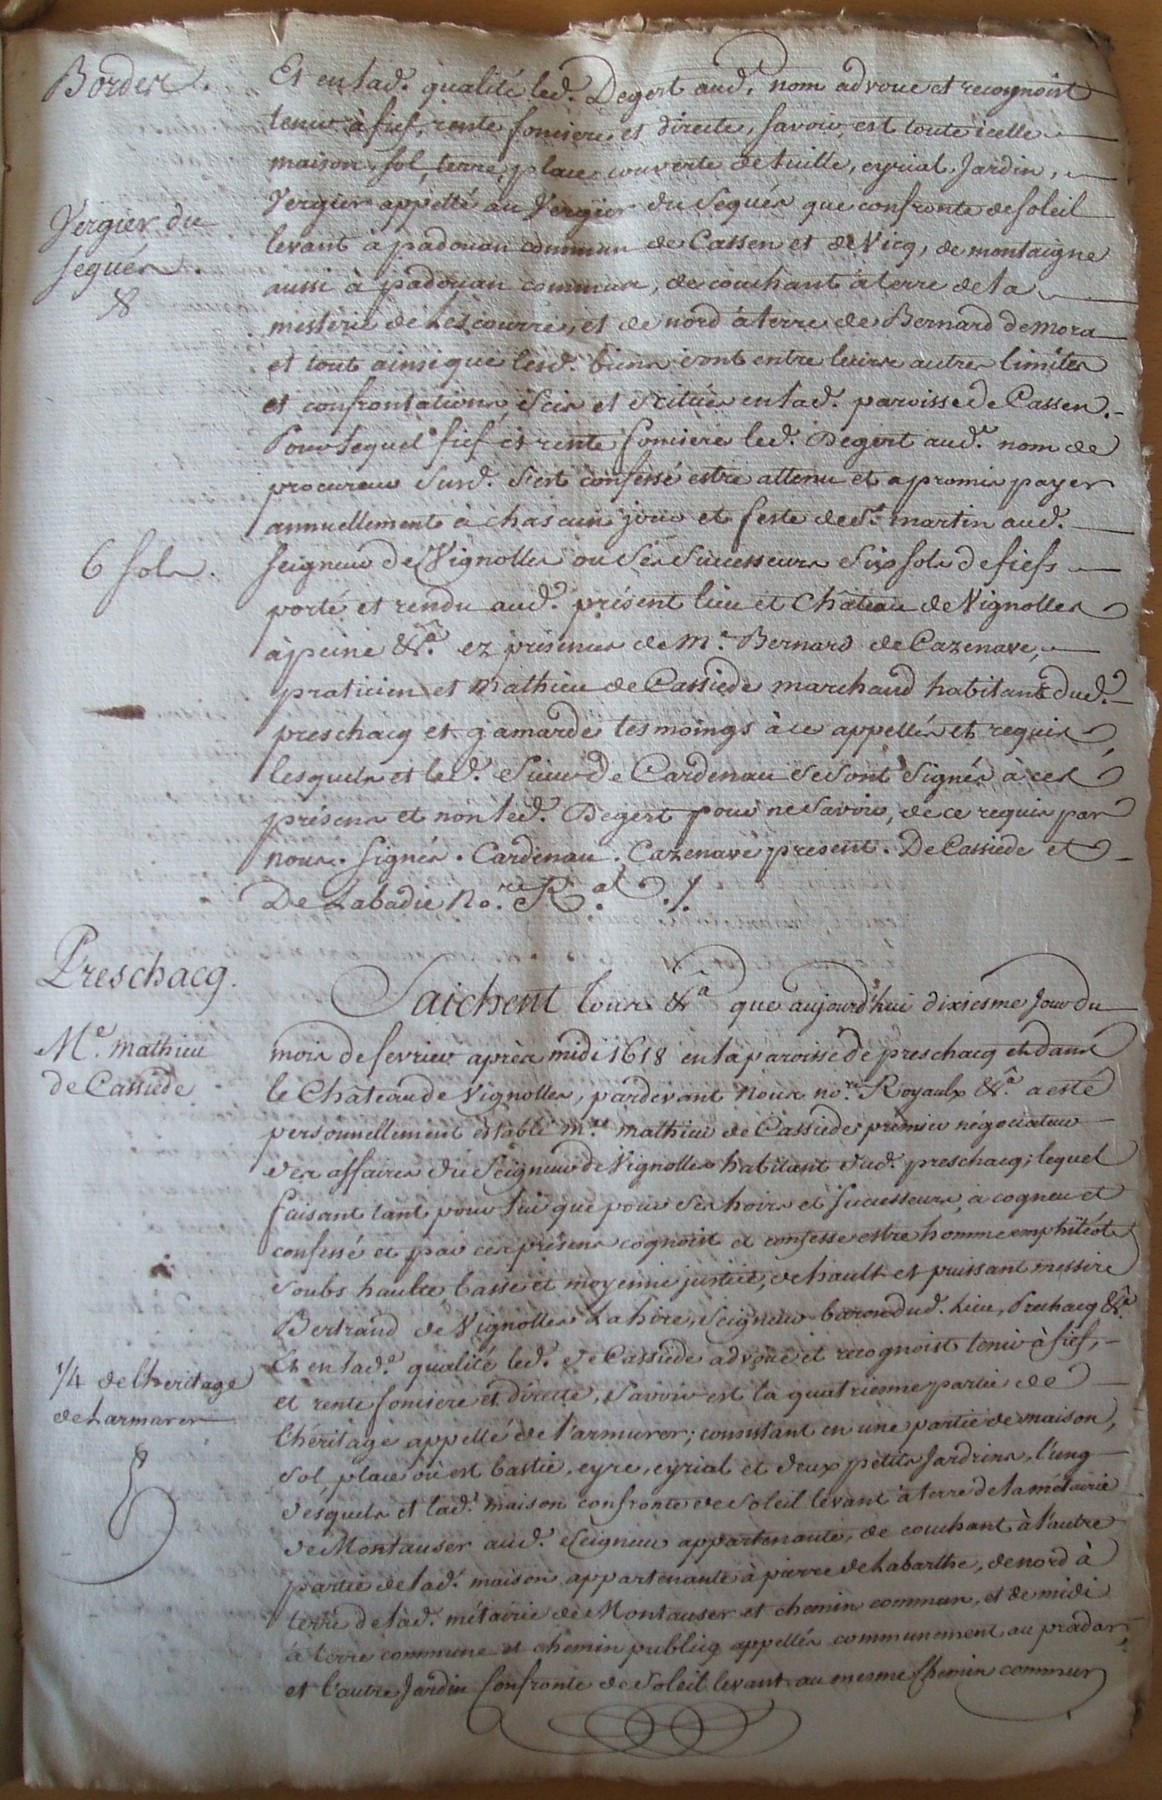 Borderé.
Et en lad.e qualité led. Degert aud. nom advoue et recognoist
tenir à fief, rente fonciere et directe, savoir est toute icelle
maison, sol, terre, place couverte de tuille, eyrial, Jardin,
Vergier du
Vergier appellé au Vergier du Seguér que confronte de soleil
seguér.
levant à padouan commun de Cassen et de Vicq, de montaigne
aussi à padouan commun, de couchant à terre de la
mesterie de Lescourre, et de nord à terre de Bernard de mora
et tout ainsi que lesd. biens sont entre leurs autres limites
et confrontations, Scis et scitués en lad. paroisse de Cassen.
Pour lequel fief et rente fonciere led. Degert aud. nom de
procureur susd. s'est confessé estre attenu et a promis payer
annuellement à chascun jour et feste de St. martin aud.
6 sols.
Seigneur de Vignolles ou ses Successeurs Six sols de fiefs
porté et rendu aud. présent lieu et Château de Vignolles
à peine &a. ez présences de Me. Bernard de Cazenave,
praticien et Mathieu de Cassiede marchand habitants dud.
preschacq et gamarde tesmoings à ce appellés et requis,
lesquels et led. Sieur De Cardenau se sont Signés à ces
présens et non led. Degert pour ne savoir, de ce requis par
nous. Signés. Cardenau. Cazenave present. De Cassiede et
De Labadie No.re R.al ./.
Preschacq.
Saichent tous &a que aujourd'hui dixiesme Jour du
Me. mathieu
mois de fevrier après midi 1618 en la paroisse de preschacq et dans
de Cassiede
le Château de Vignolles, pardevant Nous no.re Royaulx &a a esté
personnellement establi m.re mathieu de Cassiede premier négociateur
des affaires du Seigneur de Vignolles habitant dud. preschacq; lequel
faisant tant pour lui que pour ses hoirs et successeurs, a cogneu et
confessé et par ces présens cognoist et confesse estre homme emphitéote
soubs haulte basse et moyenne justice, de hault et puissant messire
Bertrand de Vignolles Lahire, Seigneur baron dud. lieu, Preschacq &a.
Et en lad.e qualité led. de Cassiede advoue et recognoist tenir à fief,
1/4 de lheritage
et rente fonciere et directe, savoir est la quatriesme partie de
de Larmurer
l'héritage appellé de l'armurer; consistant en une partie de maison,
sol, place où est bastie, eyre, eyrial et deux petits Jardrins, l'ung
desquels et lad. maison confronte de soleil levant à terre de la métairie
de Montauser aud. Seigneur appartenante, de couchant à l'autre
partie de lad. maison appartenante à pierre de Labarthe, de nord à
terre de lad. métairie de Montauser et chemin commun, et de midi
à terre commune et chemin publicq appellés communement au pradar,
et l'autre Jardin Confronte de Soleil levant au mesme Chemin commun